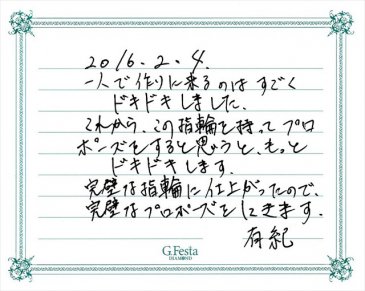 2016.2.4.
一人で作りに来るのは すごく
ドキドキしました。
これから、この指輪を持って プロ
ポーズをすると思うと、もっと
ドキドキします。
完璧な指輪に仕上がったので、
完璧なプロポーズをしてきます。
有紀
G.Festa
DIAMOND